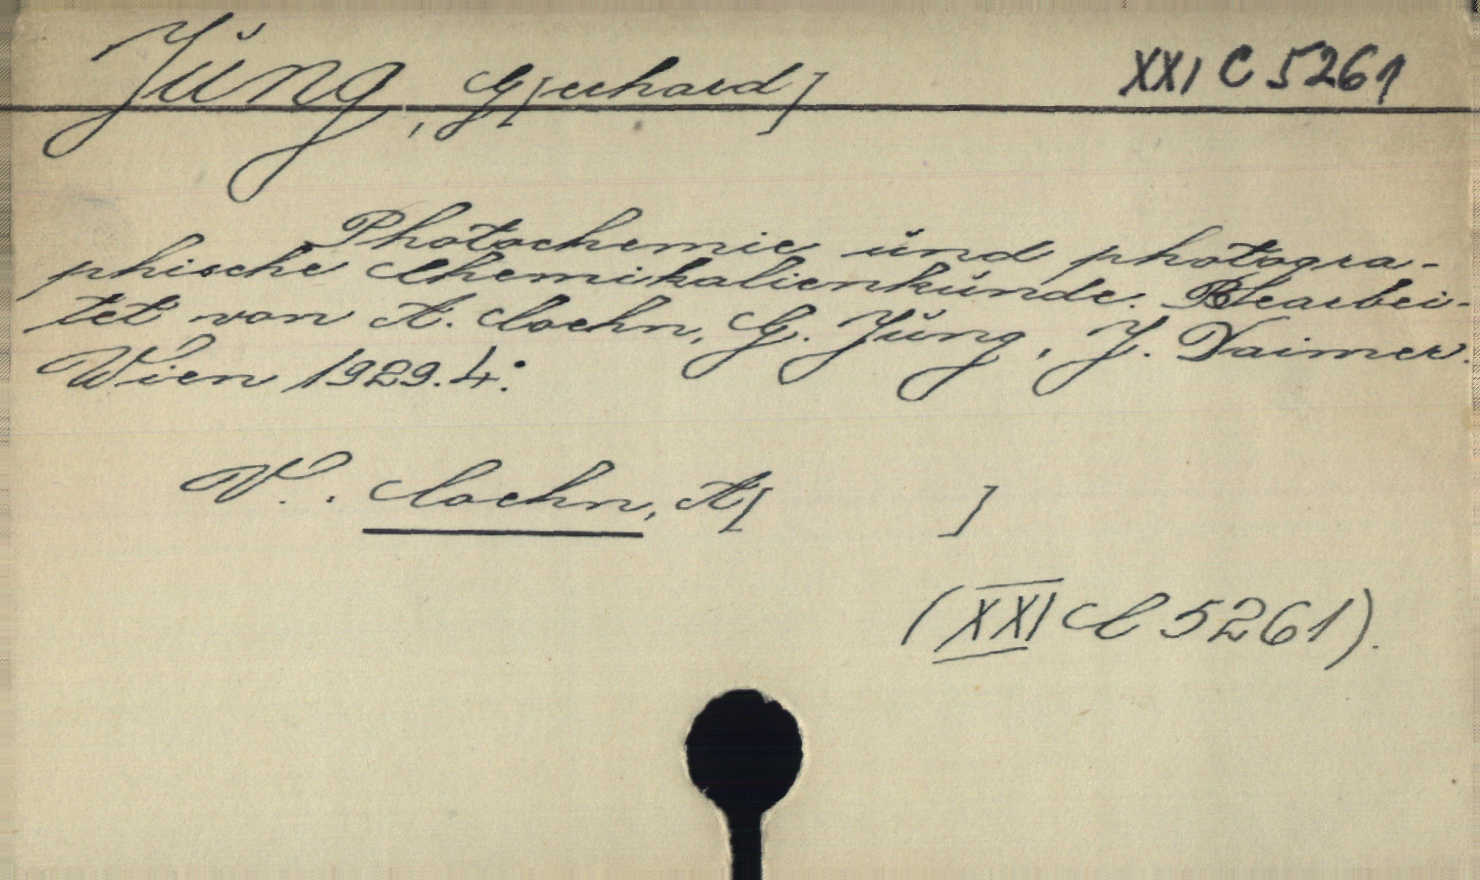 Jung, G[erhard]
XXI C 5261
Photochemie und photogra-
phische Chemikalienkunde. Bearbei-
tet von A. Coehn, G. Jung, J. Daimer.
Wien 1929. 4.°
V. Coehn, A[ ]
(XXI C 5261).